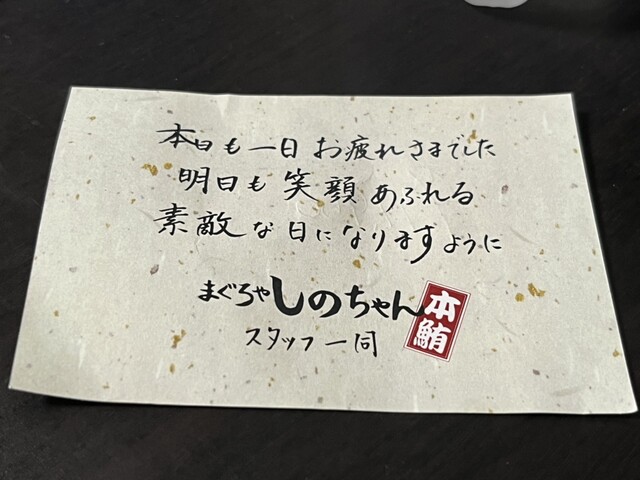 本日も一日お疲れさまでした
明日も笑顔あふれる
素敵な日になりますように
まぐろやしのちゃん
スタッフ一同
本鮪